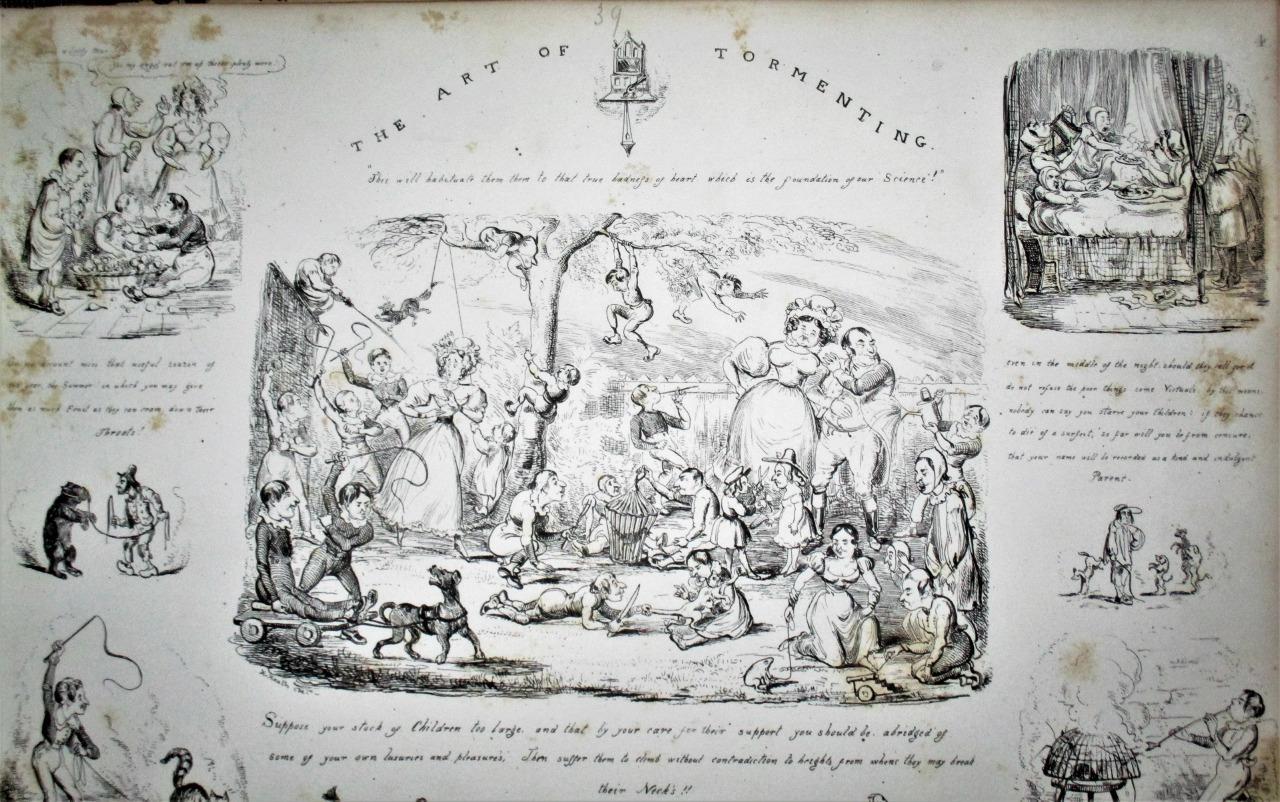 39
THE ART OF TORMENTING.
"This will habituate them them to that true badness of heart which is the foundation of our Science"!"
my angel eat em up theres plenty more
on no account miss that useful season of
the year, the Summer in which you may give
them as much Fruit as they can cram down their
Throats!
even in the middle of the night should they call for it
do not refuse the poor things some Victuals by this means
nobody can say you starve your Children; if they chance
to die of a surfeit, so far will you be from censure,
that your name will be recorded as a kind and indulgent
Parent.
Suppose your stock of Children too large, and that by your care for their support you should be abridged of
some of your own luxuries and pleasures, Then suffer them to climb without contradiction to heights from whence they may break
their Neck's!!